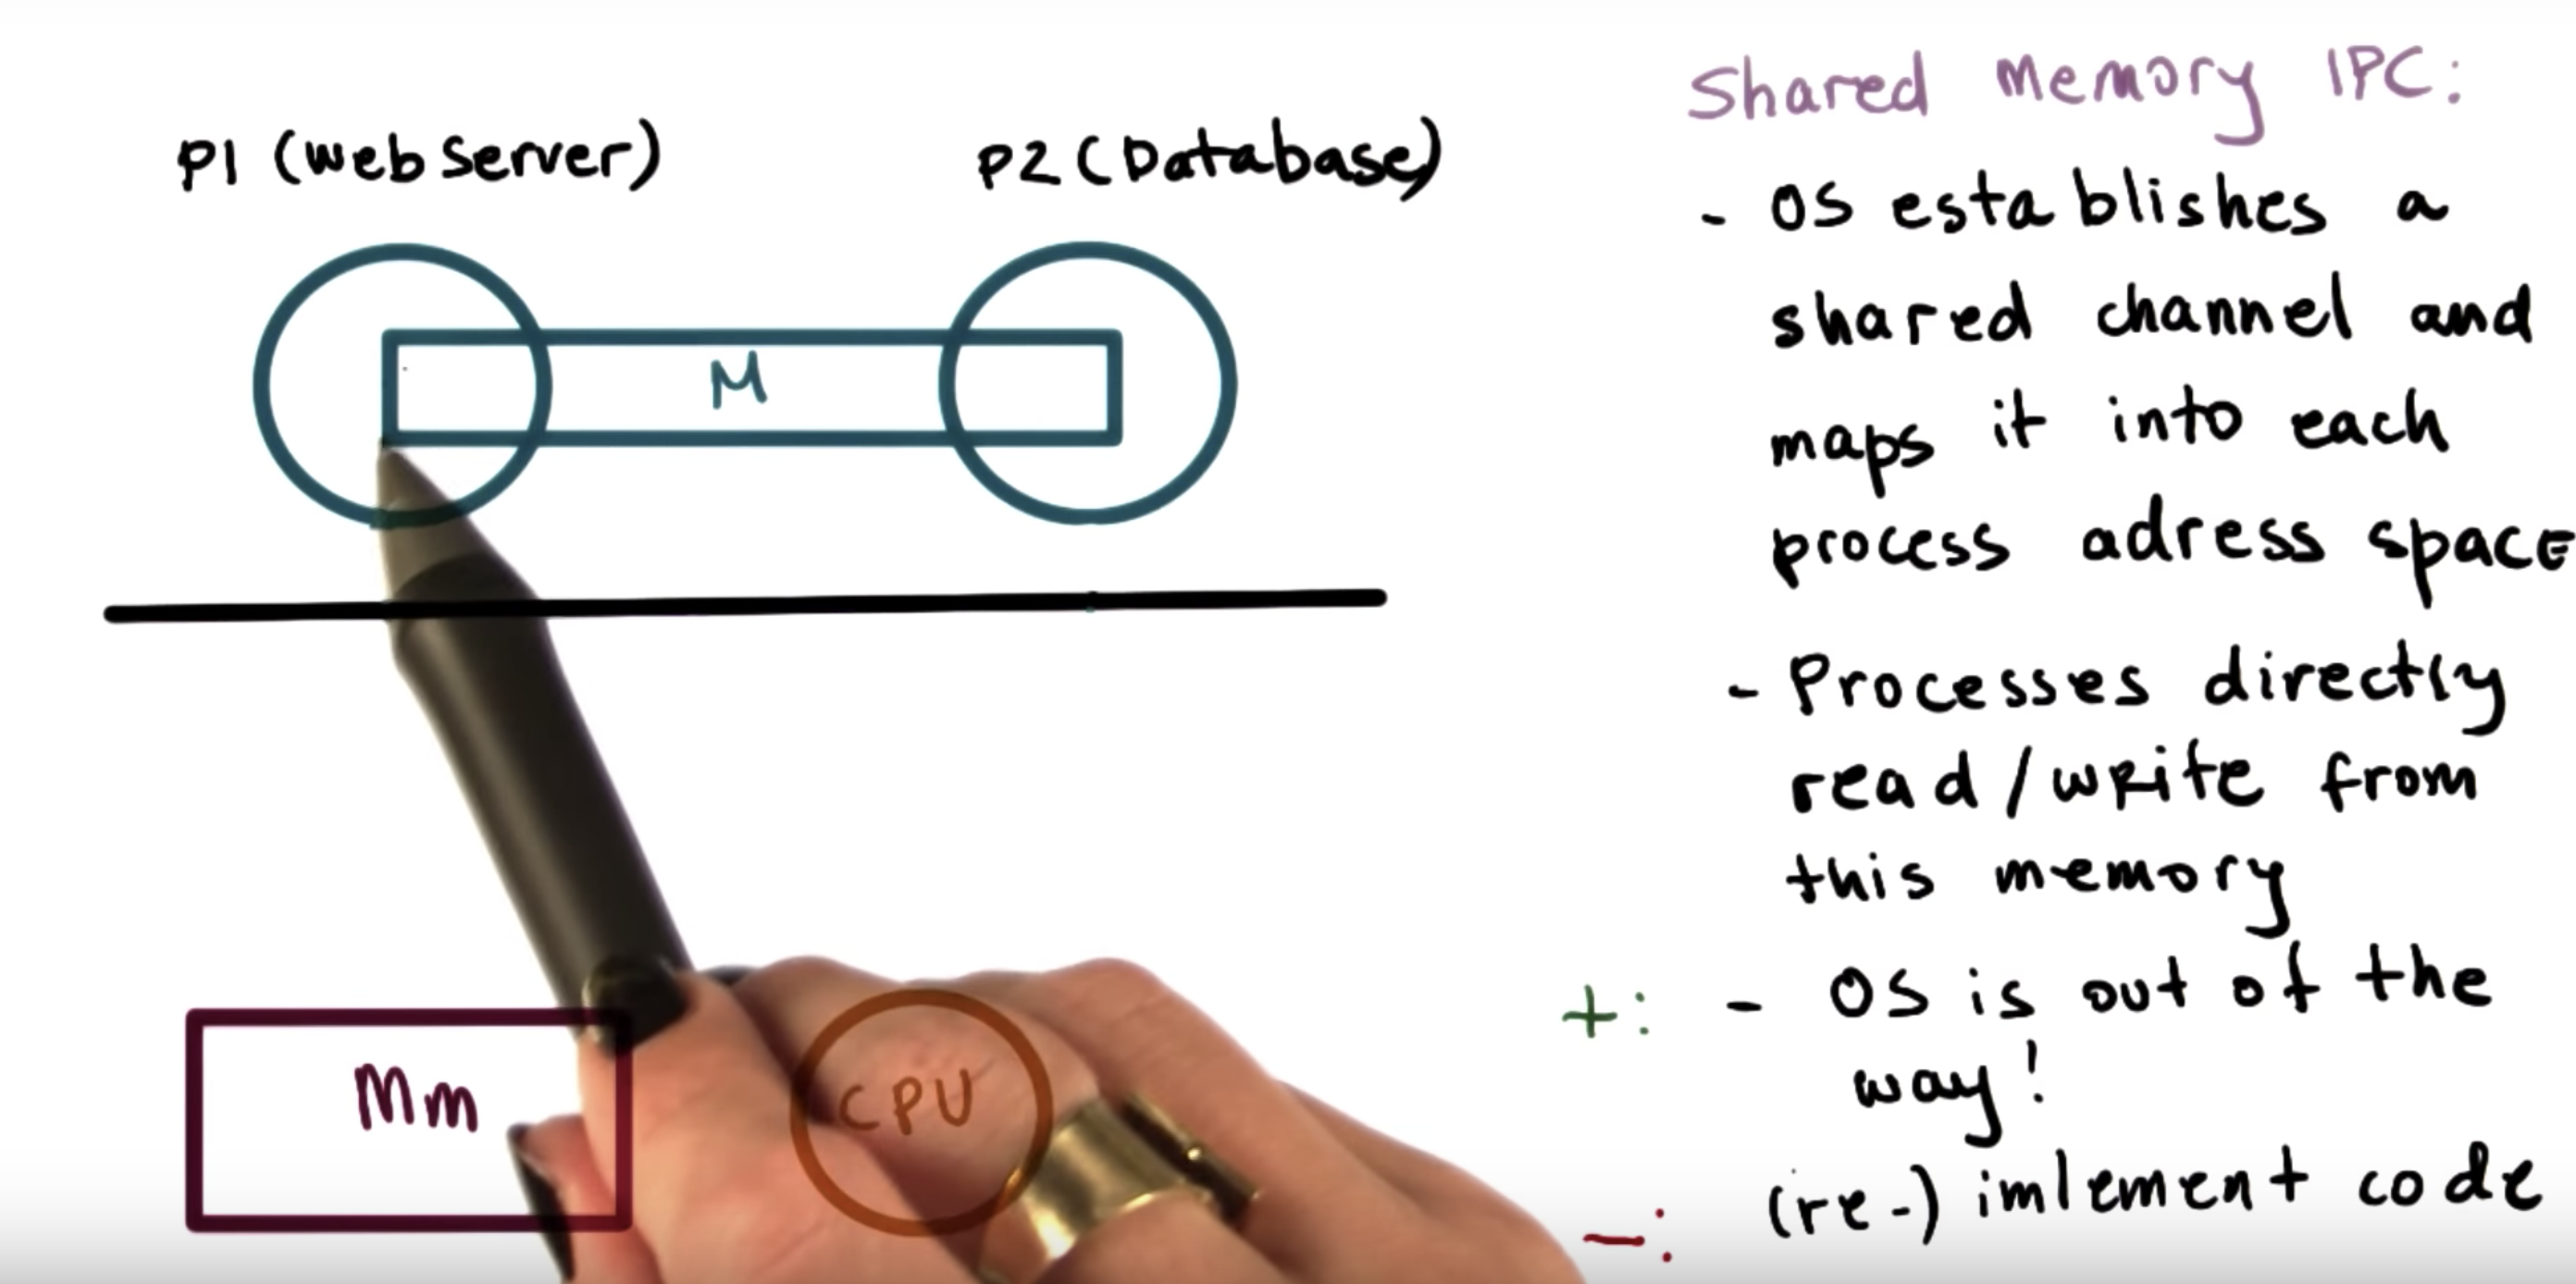 P1 (web server)
P2 (Database)
M
Mm
CPU
Shared Memory IPC:
- OS establishes a
shared channel and
maps it into each
process adress space
- Processes directly
read/write from
this memory
+: - OS is out of the
way!
-: (re-) imlement code